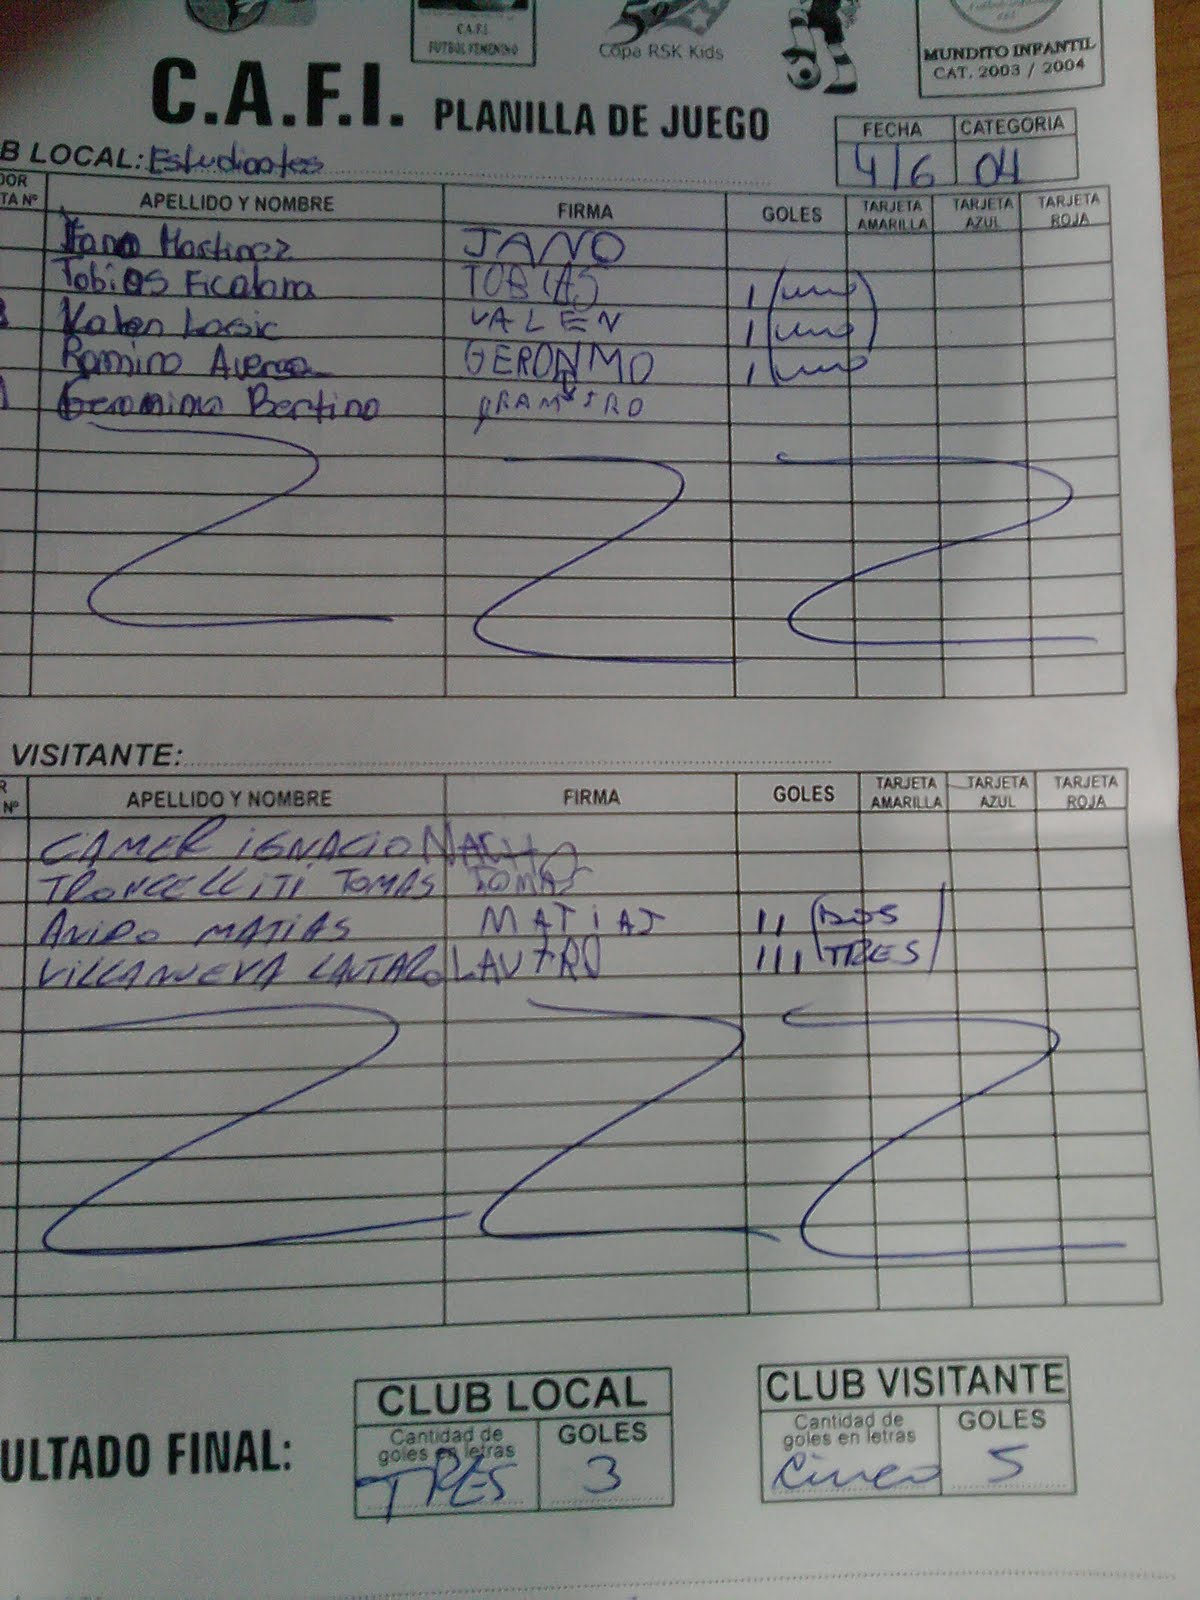 C.A.F.I.
FUTBOL FEMENINO
Copa RSK Kids
MUNDITO INFANTIL
CAT. 2003 / 2004
C.A.F.I. PLANILLA DE JUEGO
FECHA CATEGORIA
4/6 04
B LOCAL: Estudiantes
DOR
TA Nº APELLIDO Y NOMBRE FIRMA GOLES TARJETA AMARILLA TARJETA AZUL TARJETA ROJA
Martinez JANO
Tobias Ficalora TOBIAS 1 (uno)
Valen VALEN 1 (uno)
Ramiro GERONIMO 1 (uno
Geronimo Bertino RAMIRO
VISITANTE:
R
Nº APELLIDO Y NOMBRE FIRMA GOLES TARJETA AMARILLA TARJETA AZUL TARJETA ROJA
CAMER IGNACIO NACHO
TRONCELLITI TOMAS TOMAS
ANIDO MATIAS MATIAS 11 (DOS
VILLANUEVA LAUTARO LAUTRO 111 (TRES)
ULTADO FINAL:
CLUB LOCAL
Cantidad de goles en letras GOLES
TRES 3
CLUB VISITANTE
Cantidad de goles en letras GOLES
Cinco 5